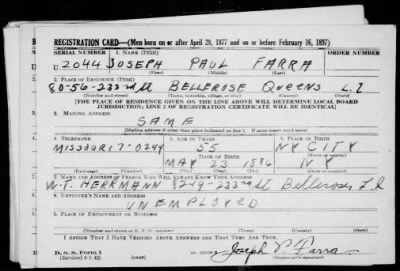 REGISTRATION CARD—(Men born on or after April 28, 1877 and on or before February 16, 1897)
SERIAL NUMBER 1. NAME (Print) ORDER NUMBER
U 2044 JOSEPH PAUL FARRA
(First) (Middle) (Last)
2. PLACE OF RESIDENCE (Print)
80-56-233rd St BELLEROSE QUEENS L.I
(Number and street) (Town, township, village, or city) (County) (State)
[THE PLACE OF RESIDENCE GIVEN ON THE LINE ABOVE WILL DETERMINE LOCAL BOARD
JURISDICTION; LINE 2 OF REGISTRATION CERTIFICATE WILL BE IDENTICAL]
3. MAILING ADDRESS
SAME
[Mailing address if other than place indicated on line 2. If same insert word same]
4. TELEPHONE 5. AGE IN YEARS 6. PLACE OF BIRTH
MISSOURI 7-0244 55 NY CITY
DATE OF BIRTH (Town or county)
MAY 23 1886 NY
(Exchange) (Number) (Mo.) (Day) (Yr.) (State or country)
7. NAME AND ADDRESS OF PERSON WHO WILL ALWAYS KNOW YOUR ADDRESS
W.T. HERRMANN 8249-233rd St. Bellerose, L.I
8. EMPLOYER'S NAME AND ADDRESS
UNEMPLOYED
9. PLACE OF EMPLOYMENT OR BUSINESS
(Number and street or R. F. D. number) (Town) (County) (State)
I AFFIRM THAT I HAVE VERIFIED ABOVE ANSWERS AND THAT THEY ARE TRUE.
D. S. S. Form 1
(Revised 4-1-42) (over) Joseph P. Farra